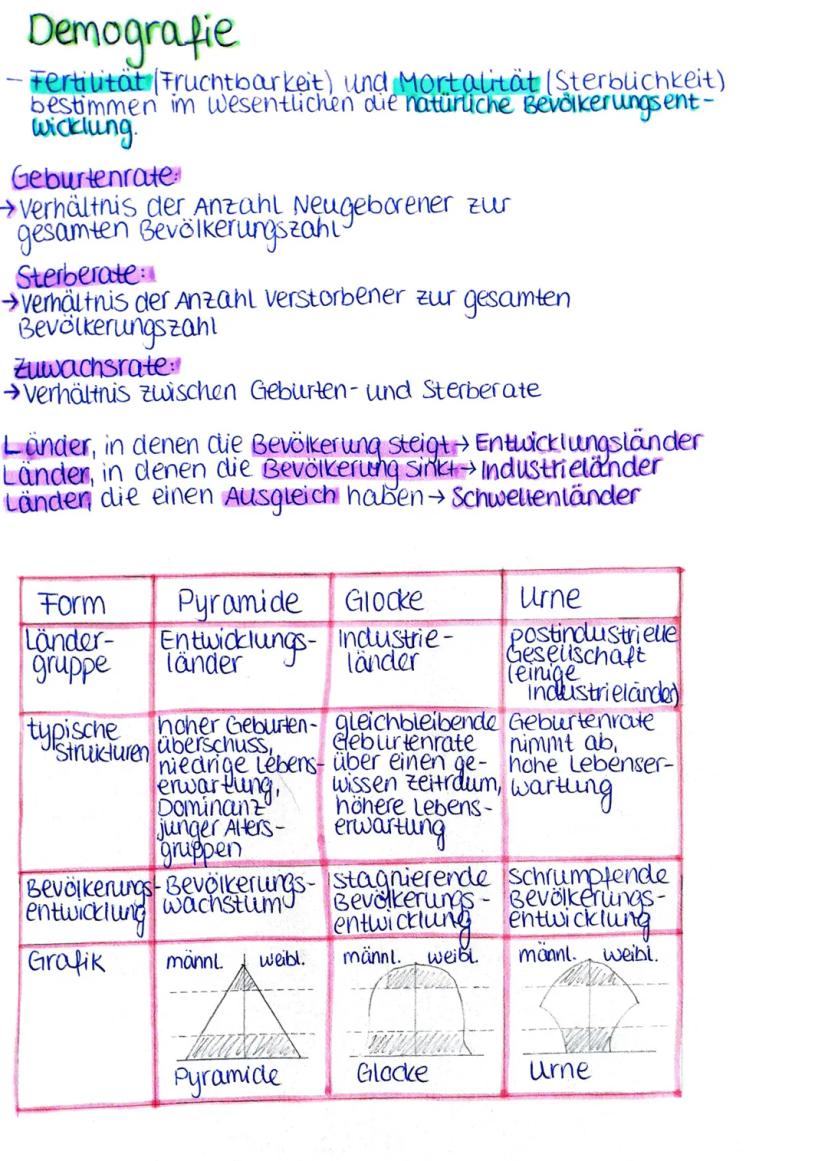 Demografie
- Fertilität (Fruchtbarkeit) und Mortalität (Sterblichkeit)
bestimmen im wesentlichen die natürliche Bevölkerungsent-
wicklung.
Geburtenrate:
→ Verhältnis der Anzahl Neugeborener zur
gesamten Bevölkerungszahl
Sterberate:
→ Verhältnis der Anzahl Verstorbener zur gesamten
Bevölkerungszahl
Zuwachsrate:
→ Verhältnis zwischen Geburten- und Sterberate
Länder, in denen die Bevölkerung steigt → Entwicklungsländer
Länder, in denen die Bevölkerung sinkt → Industrieländer
Länder, die einen Ausgleich haben → Schwellenländer
Form
Pyramide
Glocke
Urne
Länder-
gruppe
Entwicklungs-
länder
Industrie-
länder
postindustrielle
Gesellschaft
(einige
Industrieländer)
typische
Strukturen
hoher Geburten-
überschuss,
niedrige Lebens-
erwartung,
Dominanz
junger Alters-
gruppen
gleichbleibende
Geburtenrate
über einen ge-
wissen Zeitraum,
höhere Lebens-
erwartung
Geburtenrate
nimmt ab,
hohe Lebenser-
wartung
Bevölkerungs-
entwicklung
Bevölkerungs-
wachstum
stagnierende
Bevölkerungs-
entwicklung
schrumpfende
Bevölkerungs-
entwicklung
Grafik
männl. weibl.
Pyramide
männl. weibl.
Glocke
männl. weibl.
Urne